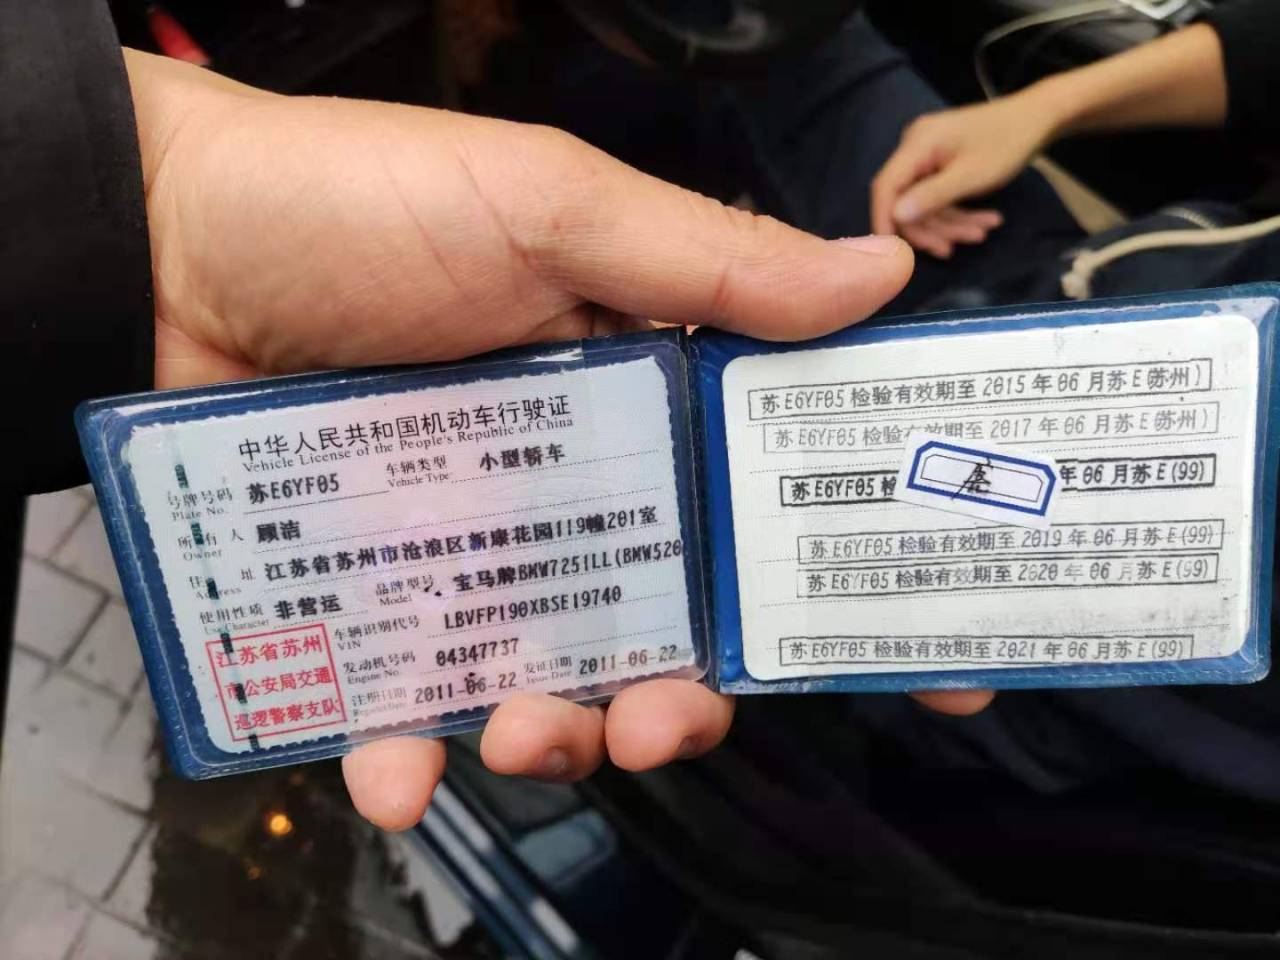 中华人民共和国机动车行驶证
Vehicle License of the People's Republic of China
号牌号码 苏E6YF05 车辆类型 小型轿车
Plate No. Vehicle Type
所有人 顾洁
Owner
住址 江苏省苏州市沧浪区新康花园119幢201室
Address
使用性质 非营运 品牌型号 宝马牌BMW7251LL(BMW520
Use Character Model
车辆识别代号 LBVFP190XBSE19740
VIN
发动机号码 04347737
Engine No.
注册日期 2011-06-22 发证日期 2011-06-22
Register Date Issue Date
江苏省苏州
市公安局交通
巡逻警察支队
苏E6YF05 检验有效期至 2015 年 06 月苏 E (苏州)
苏 E6YF05 检验有效期至 2017 年 06 月苏 E (苏州)
苏 E6YF05 检 年 06 月苏 E (99)
苏 E6YF05 检验有效期至 2019 年 06 月苏 E (99)
苏 E6YF05 检验有效期至 2020 年 06 月苏 E (99)
苏 E6YF05 检验有效期至 2021 年 06 月苏 E (99)